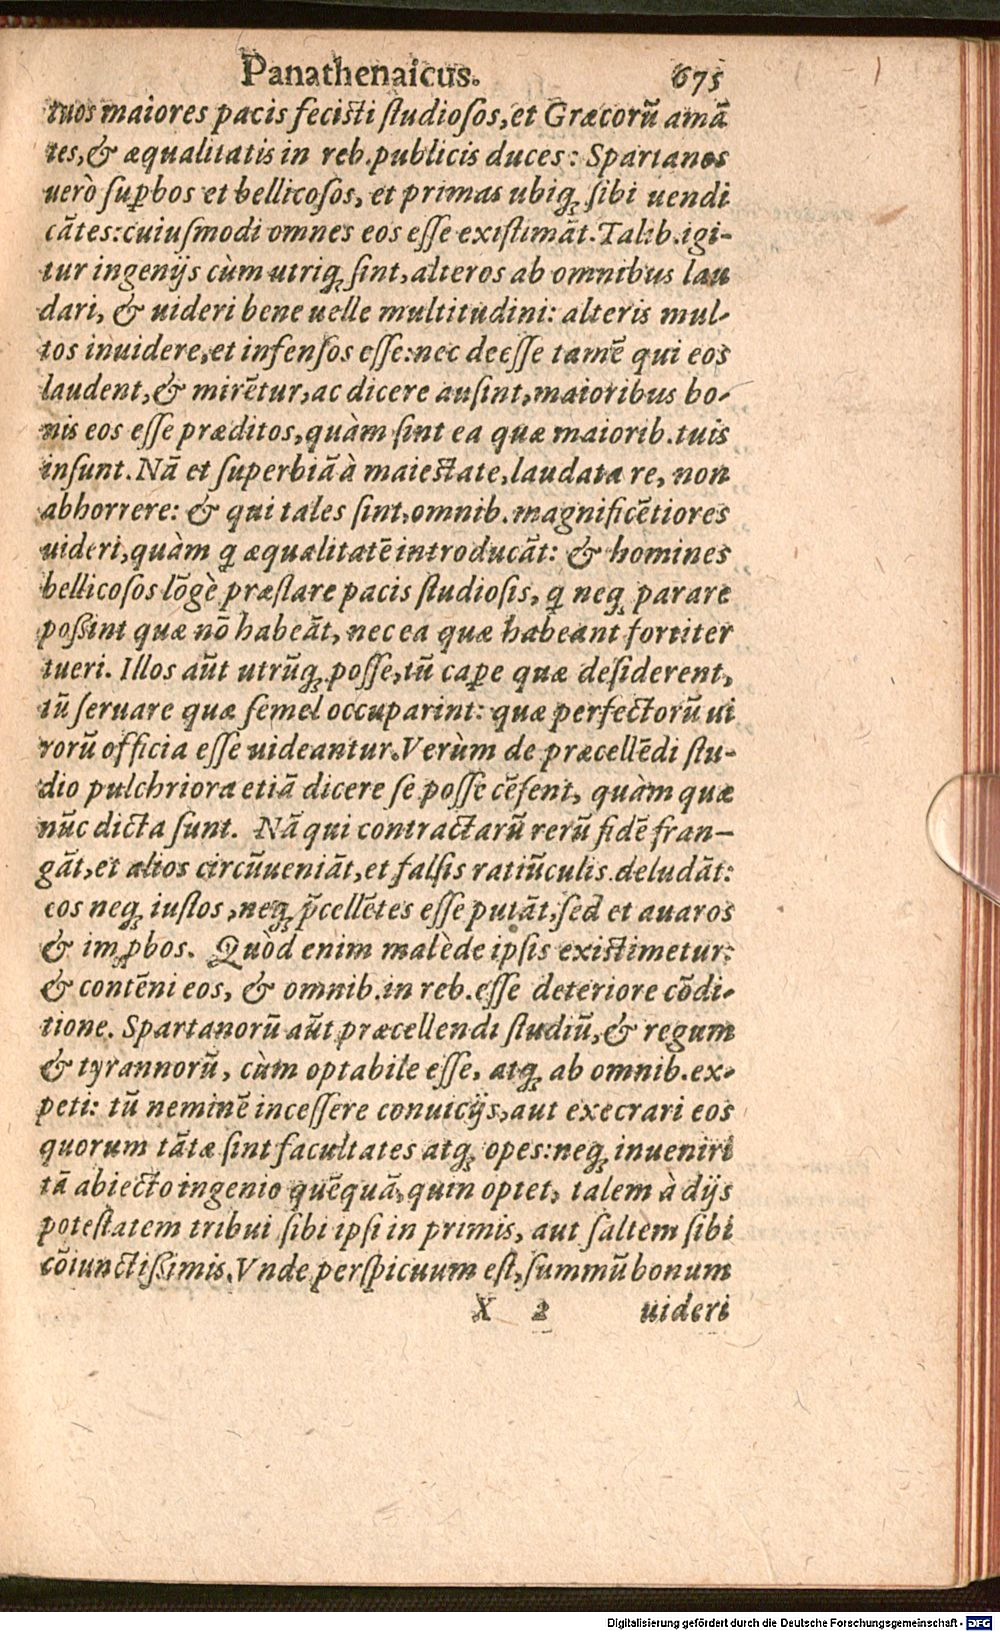 Panathenaicus. 675
tuos maiores pacis fecisti ſtudioſos, et Græcorū amā
tes, & æqualitatis in reb. publicis duces: Spartanos
uerò ſuꝑbos et bellicoſos, et primas ubiq; ſibi uendi
cātes: cuiuſmodi omnes eos eſſe exiſtimāt. Talib. igi-
tur ingenijs cùm utriq; ſint, alteros ab omnibus lau
dari, & uideri bene uelle multitudini: alteris mul-
tos inuidere, et infenſos eſſe: nec deeſſe tamē qui eos
laudent, & mirētur, ac dicere auſint, maioribus bo-
nis eos eſſe præditos, quàm ſint ea quæ maiorib. tuis
inſunt. Nā et ſuperbiā à maieſtate, laudata re, non
abhorrere: & qui tales ſint, omnib. magnificētiores
uideri, quàm q̄ æqualitatē introducāt: & homines
bellicoſos lōgè præſtare pacis ſtudioſis, q̄ neq; parare
poßint quæ nō habeāt, nec ea quæ habeant fortiter
tueri. Illos aūt utrūq; poſſe, tū caꝑe quæ deſiderent,
tū ſeruare quæ ſemel occuparint: quæ perfectorū ui
rorū officia eſſe uideantur. Verùm de præcellēdi ſtu-
dio pulchriora etiā dicere ſe poſſe cēſent, quàm quæ
nūc dicta ſunt. Nā qui contractarū rerū fidē fran-
gāt, et alios circūueniāt, et falſis ratiūculis deludāt:
eos neq; iuſtos, neq; p̄cellētes eſſe putāt, ſed et auaros
& imꝓbos. Quòd enim malède ipſis existimetur:
& contēni eos, & omnib. in reb. eſſe deteriore cōdi-
tione. Spartanorū aūt præcellendi ſtudiū, & regum
& tyrannorū, cùm optabile eſſe, atq; ab omnib. ex-
peti: tū neminē inceſſere conuicijs, aut execrari eos
quorum tātæ ſint facultates atq; opes: neq; inueniri
tā abiecto ingenio quēquā, quin optet, talem à dijs
poteſtatem tribui ſibi ipſi in primis, aut ſaltem ſibi
cōiunctißimis. Vnde perſpicuum eſt, ſummū bonum
X 2 uideri
Digitalisierung gefördert durch die Deutsche Forschungsgemeinschaft - DFG